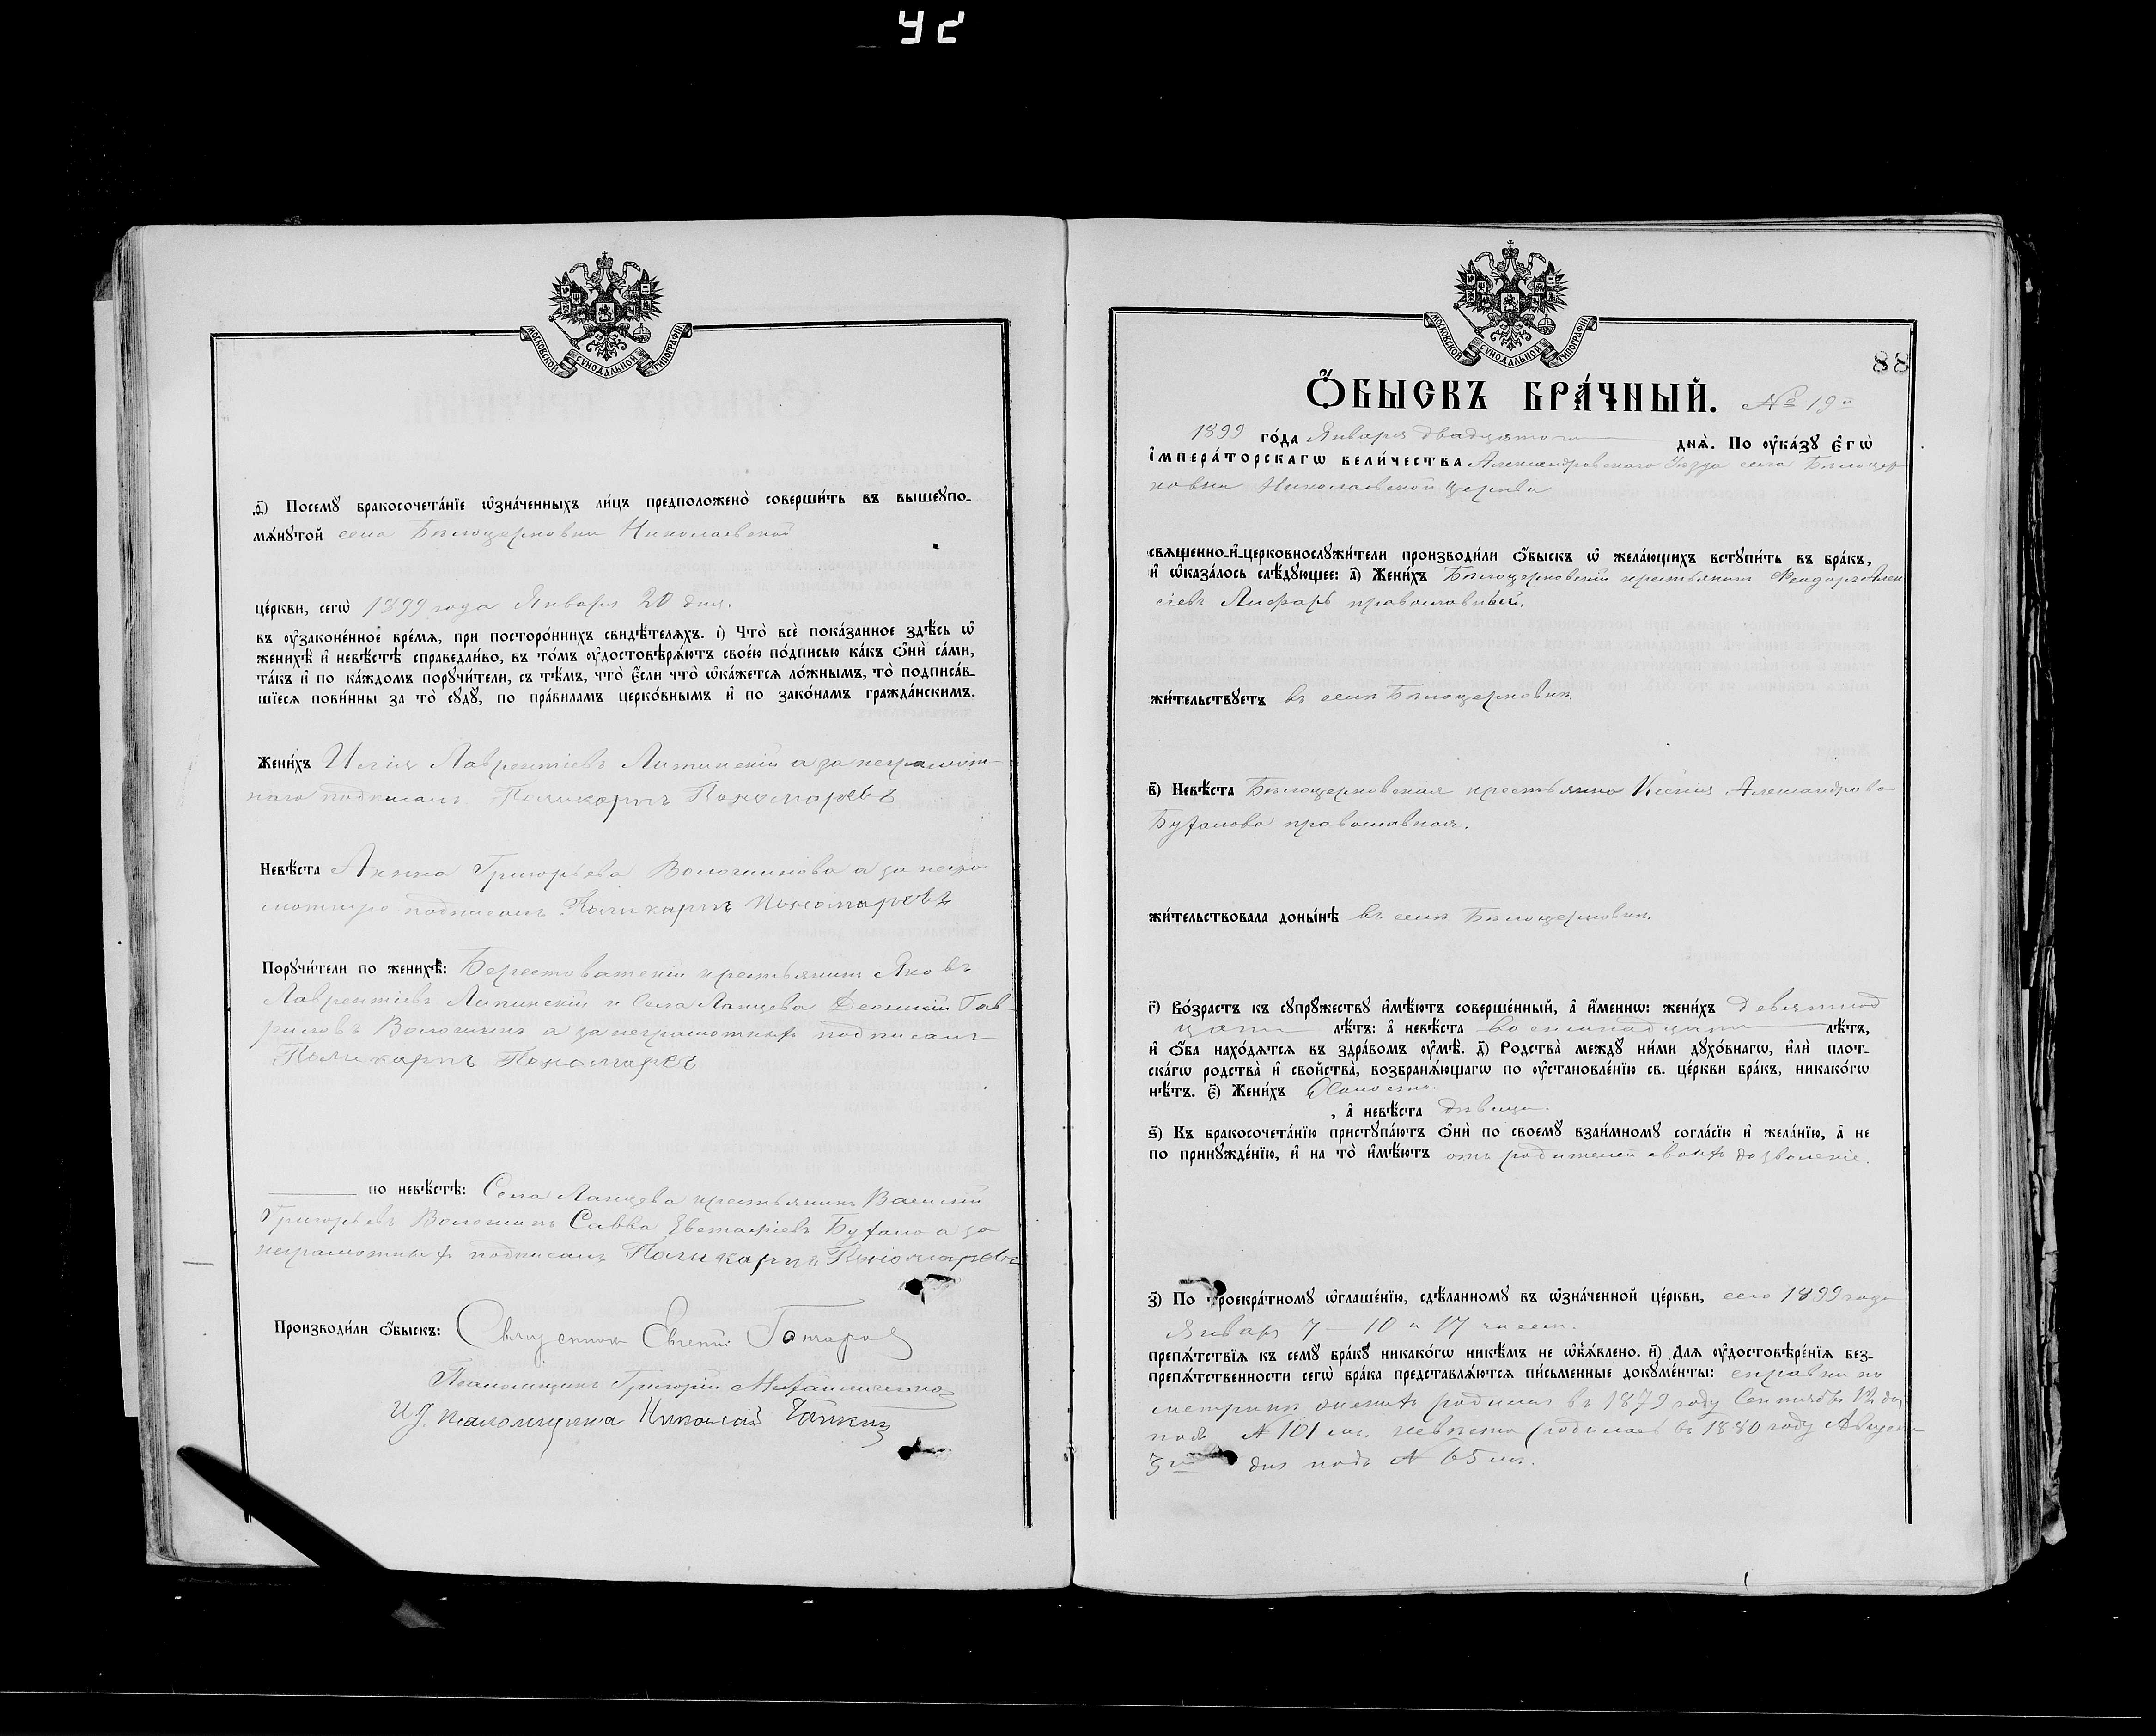 92
МОСКОВСКОЙ СѴНОДАЛЬНОЙ ТИПОГРАФІИ
ѳ҃) Посемꙋ̀ бракосочета́нїе ѡ҆зна́ченныхъ ли́цъ предположено̀ соверши́ть въ вышеꙋпо-
мѧ́нꙋтой села Бѣлоцерковки Николаевской
це́ркви, сегѡ̀ 1899 года Января 20 дня.
въ ᲂу҆законе́нное вре́мѧ, при посторо́ннихъ свидѣ́телѧхъ. і҃) Что̀ всѐ пока́занное здѣ́сь ѡ҆
женихѣ̀ и҆ невѣ́стѣ справедли́во, въ то́мъ ᲂу҆достовѣрѧ́ютъ свое́ю по́дписью ка́къ ѻ҆нѝ са́ми,
та́къ и҆ по ка́ждомъ порꙋчи́тели, съ тѣ́мъ, что̀ є҆́сли что̀ ѡ҆ка́жетсѧ ло́жнымъ, то̀ подписа́в-
шїесѧ пови́нны за то̀ сꙋдꙋ̀, по пра́виламъ церко́внымъ и҆ по зако́намъ гражда́нскимъ.
Жени́хъ Илія Лаврентіевъ Липинскій а за неграмот-
наго подписалъ Поликарпъ Пономаревъ
Невѣ́ста Анна Григорьева Волошинова а за негра
мотную подписалъ Поликарпъ Пономаревъ
Порꙋчи́тели по женихѣ̀: Берестоватскій крестьянинъ Яковъ
Лаврентіевъ Липинскій и Села Ланцева Леонтій Гав-
риловъ Волошинъ а за неграмотныхъ подписалъ
Поликарпъ Пономаревъ
по невѣ́стѣ: Села Ланцева крестьянинъ Василій
Григорьевъ Волошинъ Савва Евстафіевъ Бухало а за
неграмотныхъ подписалъ Поликарпъ Пономаревъ
Производи́ли ѻ҆́быскъ: Священникъ Евгеній Гончаров
Псаломщикъ Григорій
И.д. псаломщика Николай
МОСКОВСКОЙ СѴНОДАЛЬНОЙ ТИПОГРАФІИ
88
Ѻ҆́БЫСКЪ БРА́ЧНЫЙ. № 19й
1899 го́да Января двадцатого днѧ̀. По ᲂу҆ка́зꙋ Є҆гѡ̀
І҆мпера́торскагѡ вели́чества Александровскаго Уѣзда села Бѣлоцер
ковки Николаевской церкви
свѧще́нно-и҆-церковнослꙋжи́тели производи́ли ѻ҆́быскъ ѡ҆ жела́ющихъ встꙋпи́ть въ бра́къ,
и҆ ѡ҆каза́лось слѣ́дꙋющее: а҃) Жени́хъ Бѣлоцерковскій крестьянинъ Феодоръ Алек
сіевъ Лифарь православный.
жи́тельствꙋетъ въ селѣ Бѣлоцерковкѣ.
в҃) Невѣ́ста Бѣлоцерковская крестьянка Ксенія Александрова
Бухалова православная.
жи́тельствовала доны́нѣ въ селѣ Бѣлоцерковкѣ.
г҃) Во́зрастъ къ сꙋпрꙋ́жествꙋ и҆мѣ́ютъ соверше́нный, а҆ и҆́меннѡ: жени́хъ Девятнад
цати лѣ́тъ: а҆ невѣ́ста восемнадцати лѣ́тъ,
и҆ ѻ҆́ба нахо́дѧтсѧ въ здра́вомъ ᲂу҆мѣ̀. д҃) Родства̀ междꙋ̀ ни́ми дꙋхо́внагѡ, и҆лѝ плот-
ска́гѡ родства̀ и҆ сво́йства̀, возбранѧ́ющагѡ по ᲂу҆становле́нїю св. це́ркви бра́къ, никако́гѡ
нѣ́тъ. є҃) Жени́хъ Холостъ.
, а҆ невѣ́ста дѣвица.
ѕ҃) Къ бракосочета́нїю пристꙋпа́ютъ ѻ҆нѝ по своемꙋ̀ взаи́мномꙋ согла́сїю и҆ жела́нїю, а҆ не
по принꙋжде́нїю, и҆ на то̀ и҆мѣ́ютъ отъ родителей своихъ дозволеніе.
з҃) По троекра́тномꙋ ѡ҆глаше́нїю, сдѣ́ланномꙋ въ ѡ҆зна́ченной це́ркви, сего 1899 года
Января 7 – 10 и 17 чиселъ.
препѧ́тствїѧ къ семꙋ̀ бра́кꙋ никако́гѡ никѣ́мъ не ѡ҆б̾ѧ́влено. и҃) Длѧ ᲂу҆достовѣре́нїѧ без-
препѧ́тственности сегѡ̀ бра́ка представлѧ́ютсѧ пи́сьменные докꙋме́нты: справки по
метрикѣ женихъ родился въ 1879 году Сентября 12 дня
подъ № 101 м. невѣста родилась въ 1880 году Августа
дня подъ № 65 ж.